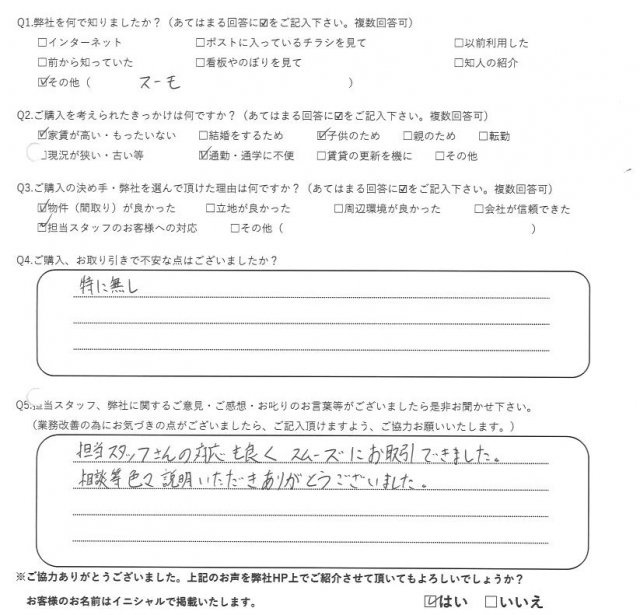 Q1.弊社を何で知りましたか？（あてはまる回答に☑をご記入下さい。複数回答可）
☐インターネット ☐ポストに入っているチラシを見て ☐以前利用した
☐前から知っていた ☐看板やのぼりを見て ☐知人の紹介
☑その他（ スーモ ）
Q2.ご購入を考えられたきっかけは何ですか？（あてはまる回答に☑をご記入下さい。複数回答可）
☑家賃が高い・もったいない ☐結婚をするため ☑子供のため ☐親のため ☐転勤
☐現況が狭い・古い等 ☑通勤・通学に不便 ☐賃貸の更新を機に ☐その他
Q3.ご購入の決め手・弊社を選んで頂けた理由は何ですか？（あてはまる回答に☑をご記入下さい。複数回答可）
☑物件（間取り）が良かった ☐立地が良かった ☐周辺環境が良かった ☐会社が信頼できた
☑担当スタッフのお客様への対応 ☐その他（ ）
Q4.ご購入、お取り引きで不安な点はございましたか？
特に無し
Q5.担当スタッフ、弊社に関するご意見・ご感想・お叱りのお言葉等がございましたら是非お聞かせ下さい。
（業務改善の為にお気づきの点がございましたら、ご記入頂けますよう、ご協力お願いいたします。）
担当スタッフさんの対応も良く スムーズにお取引できました。
相談等色々説明いただきありがとうございました。
※ご協力ありがとうございました。上記のお声を弊社HP上でご紹介させて頂いてもよろしいでしょうか？
お客様のお名前はイニシャルで掲載いたします。 ☑はい ☐いいえ